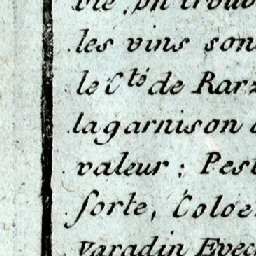 vie, on trouv
les vins son
le C.té de Rarz
la garnison
valeur ; Pest
forte, Coloc
Varadin Evec